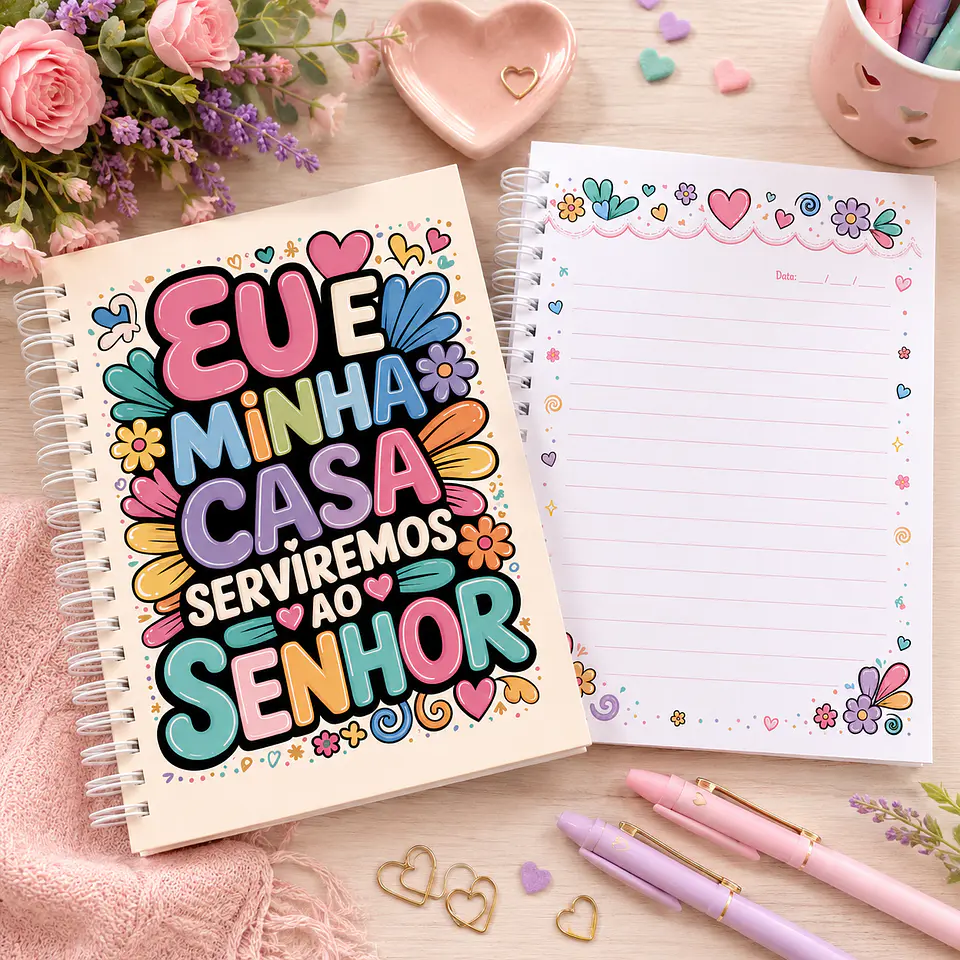 EU E
MINHA
CASA
SERVIREMOS
AO
SENHOR
Data: ____/____/____